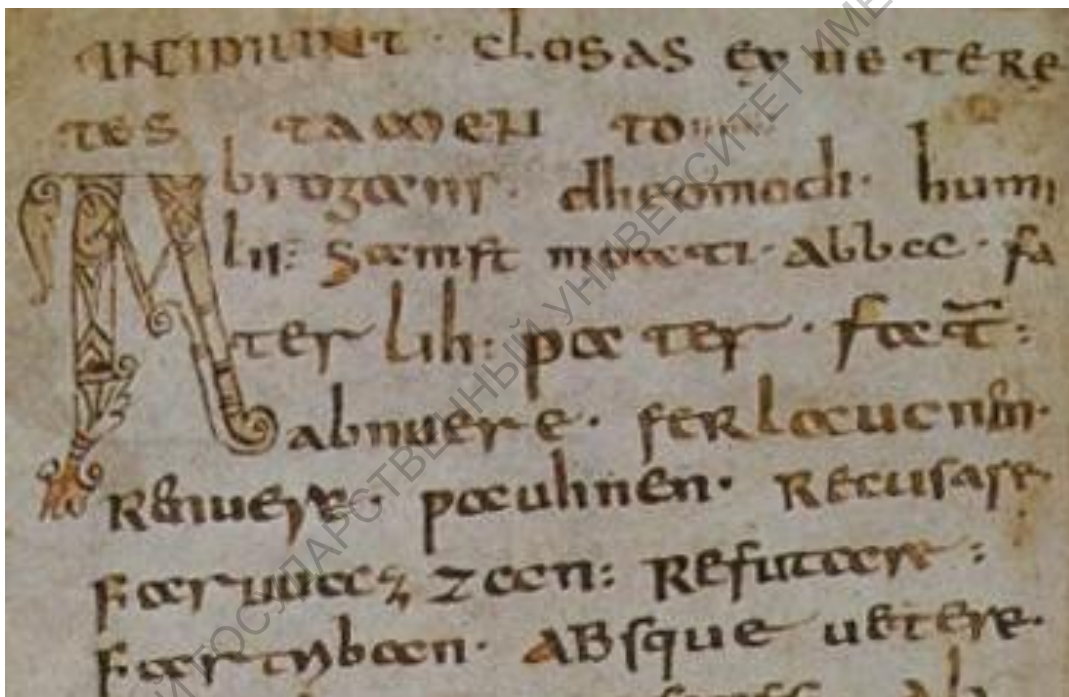 INCIPIUNT · CLOSAS EX UETERE
TES TAMEN TO
Abrogans · dheomodi · humi
lis: samft moati · abbae · fa
ter lih: pater · fat̄:
abnuere · ferlaucnen·
Renuere · pauhnen · Recusare·
faruuaz zan: Refutare:
fartriban · ABsque uetere·
ГОСУДАРСТВЕННЫЙ УНИВЕРСИТЕТ